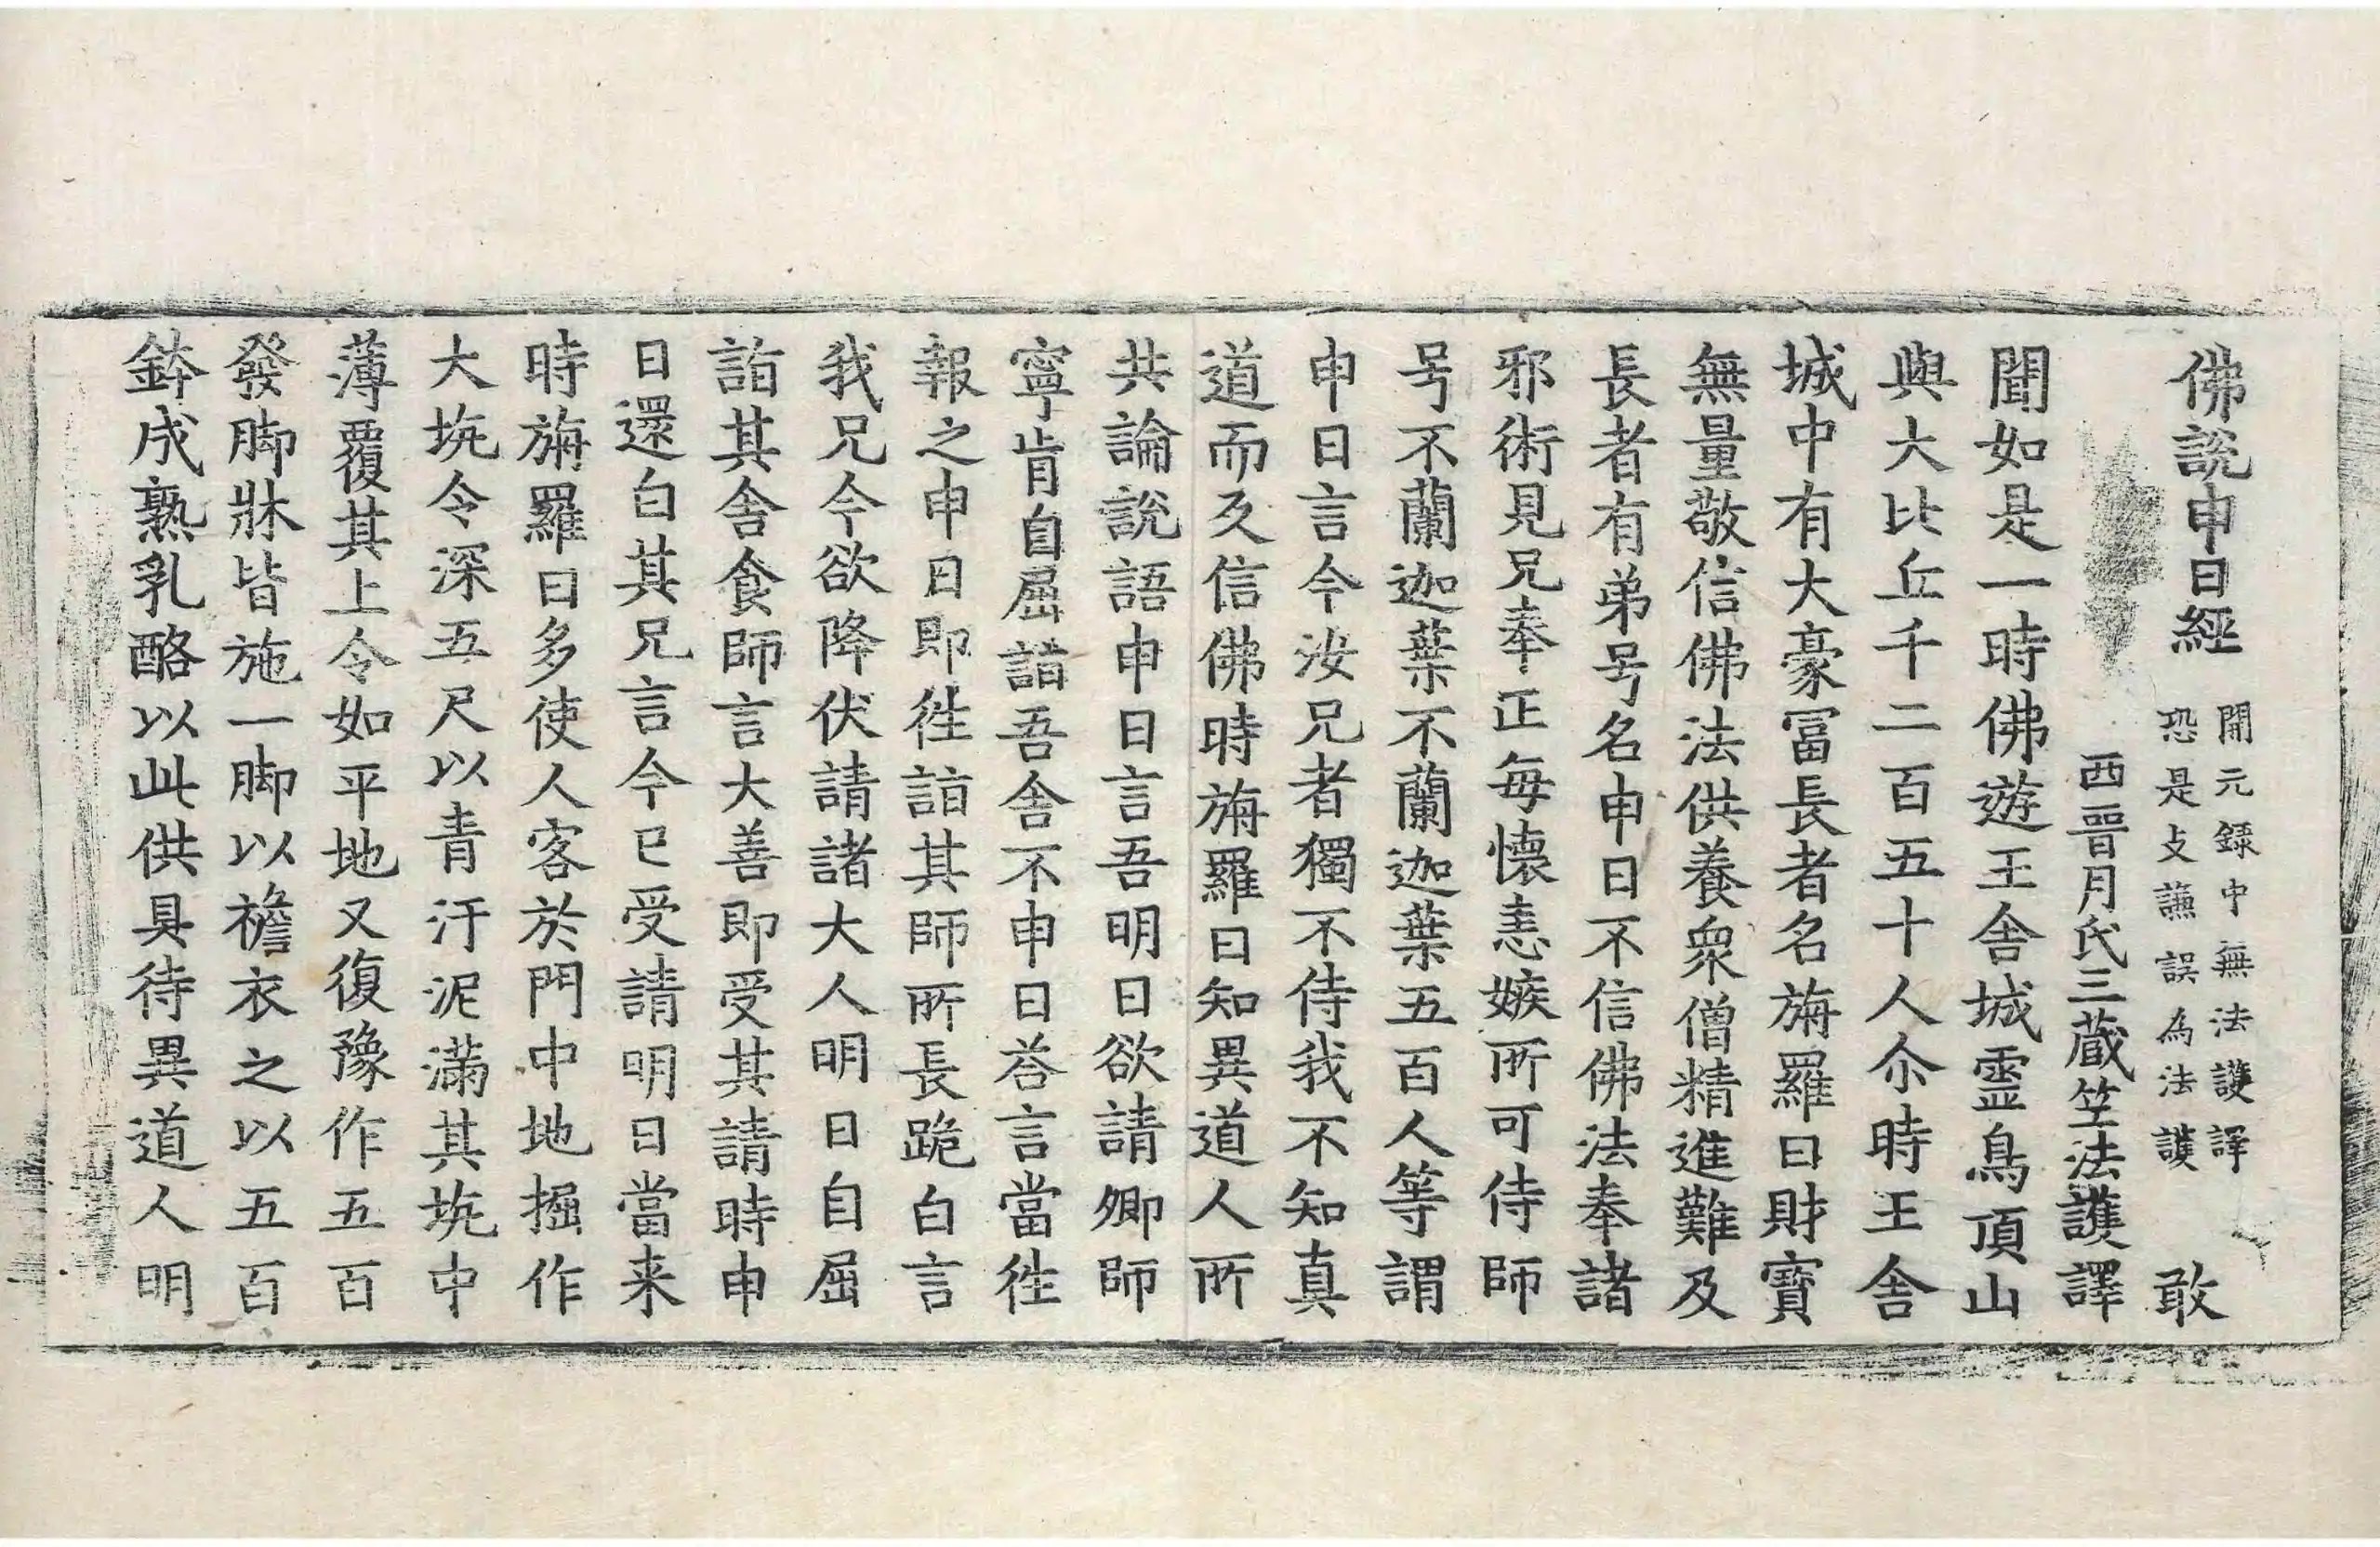 佛說申日經 開元錄中無法護譯恐是支謙誤為法護 敢
西晉月氏三藏竺法護譯
聞如是一時佛遊王舍城靈鳥頂山
與大比丘千二百五十人尒時王舍
城中有大豪冨長者名旃羅日財寶
無量敬信佛法供養衆僧精進難及
長者有弟号名申日不信佛法奉諸
邪術見兄奉正每懷恚嫉所可侍師
号不蘭迦葉不蘭迦葉五百人等謂
申日言今汝兄者獨不侍我不知真
道而反信佛時旃羅日知異道人所
共論說語申日言吾明日欲請卿師
寧肯自屈詣吾舍不申日荅言當徃
報之申日即徃詣其師所長跪白言
我兄今欲降伏請諸大人明日自屈
詣其舍食師言大善即受其請時申
日還白其兄言今已受請明日當来
時旃羅日多使人客於門中地掘作
大坑令深五尺以青汙泥滿其坑中
薄覆其上令如平地又復豫作五百
發脚牀皆施一脚以襜衣之以五百
鉢成熟乳酪以此供具待異道人明